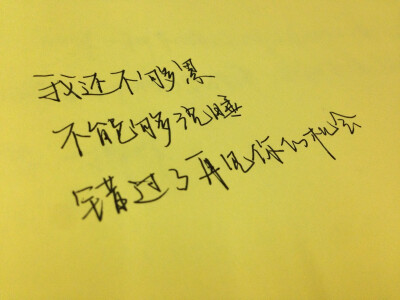 我还不够累
不能够沉睡
错过了再见你的机会